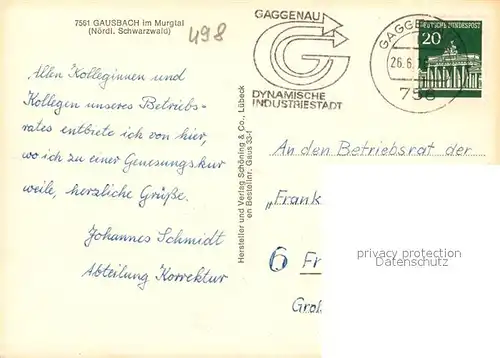 7561 GAUSBACH im Murgtal
(Nördl. Schwarzwald)
498
Allen Kolleginnen und
Kollegen unseres Betriebs-
rates entbiete ich von hier,
wo ich zu einer Genesungskur
weile, herzliche Grüße.
Johannes Schmidt
Abteilung Korrektur
Hersteller und Verlag Schöning & Co., Lübeck
en Bestellnr. Gaus 33-I
GAGGENAU
DYNAMISCHE
INDUSTRIESTADT
GAGGE
26.6.
756
DEUTSCHE BUNDESPOST
20
An den Betriebsrat der
„Frank
6 Fr
Gro
privacy protection
Datenschutz